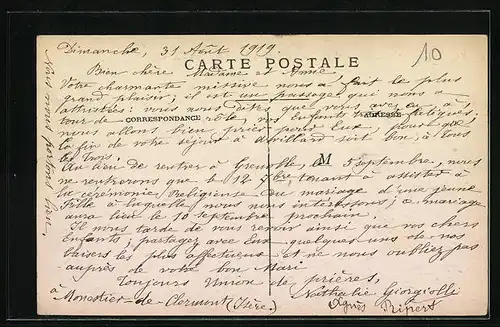 Dimanche, 31 Août 1919.
CARTE POSTALE
Bien chère Madame et Amie
Votre charmante missive nous a fait le plus
grand plaisir; il est un passage qui nous a
attristées: vous nous dites que vous avez eu à
tour de CORRESPONDANCE rôle, vos Enfants ADRESSE fatigués,
nous allons bien prier pour Eux, pour que
la fin de votre séjour à Arvillard soit bon, à tous
les trois.
M
Au lieu de rentrer à Grenoble, le 5 septembre, nous
ne rentrerons que le 12 tenant à assister à
la cérémonie Religieuse du mariage d'une jeune
fille à laquelle nous nous intéressons; ce mariage
aura lieu le 10 septembre prochain.
Il nous tarde de vous revoir ainsi que vos chers
Enfants; partagez avec Eux quelques uns de nos
baisers les plus affectueux et ne nous oubliez pas
auprès de votre bon Mari
Toujours Union de prières,
à Monestier-de-Clermont (Isère.) Nathalie
Agnès Ripert
Nous nous portons bien.